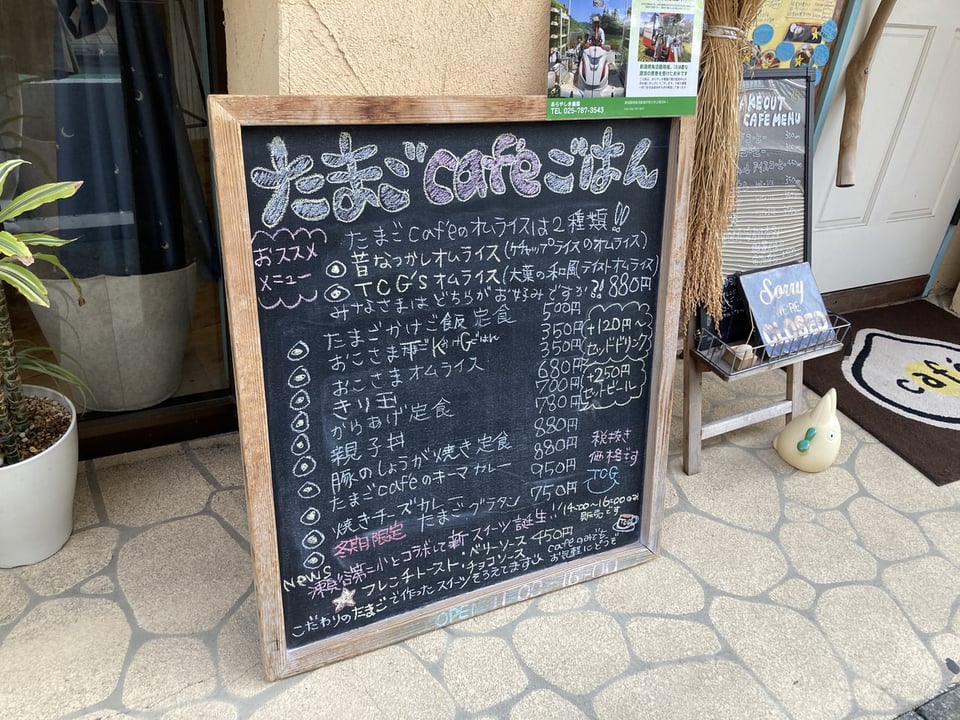 たまごcaféごはん
おススメ
メニュー
たまごcaféのオムライスは2種類!!
昔なつかしオムライス(ケチャップライスのオムライス)
TCG'sオムライス(大葉の和風テイストオムライス)
みなさまはどちらがお好みですか?! 880円
たまごかけご飯定食 500円
おこさま 350円
おこさまオムライス 350円
きり玉 680円
からあげ定食 700円
親子丼 780円
豚のしょうが焼き定食 880円
たまごcaféのキーマカレー 880円
焼きチーズカレー 950円
冬期限定 たまごグラタン 750円
+120円〜
セットドリンク
+250円
セットビール
税抜き
価格です
TCG
NEWS
瀬谷第二小とコラボして新スイーツ誕生!!
14:00〜16:00のみ
販売です
フレンチトースト・ベリーソース 450円
・チョコソース
こだわりのたまごで作ったスイーツそろえてますよ
caféのみでも
お気軽にどうぞ
OPEN 11:00-16:00
あらやしき農園
TEL 025-787-3543
TAKEOUT
CAFE MENU
Sorry
WE'RE
CLOSED
café